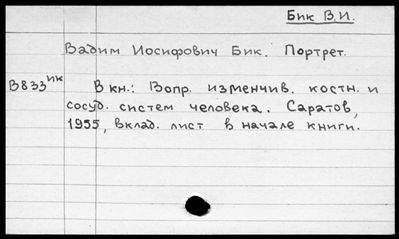 Бик В.И.
Вадим Иосифович Бик. Портрет.
В833ик В кн.: Вопр. изменчив. костн. и
сосуд. систем человека. Саратов,
1955, вклад. лист в начале книги.